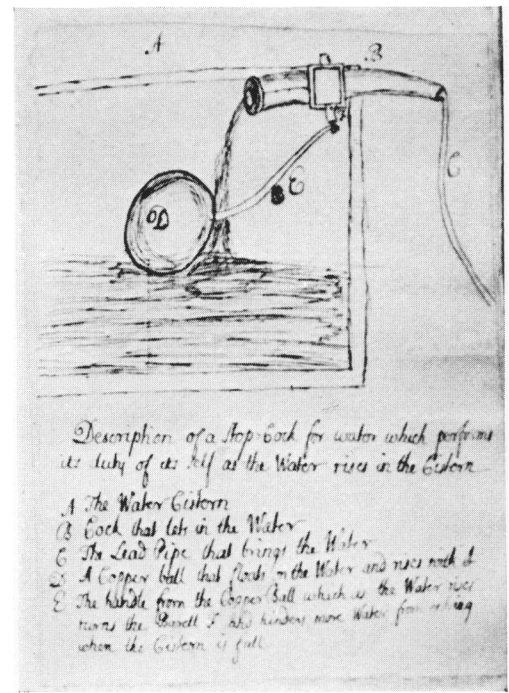 A
B
C
E
D
Description of a Stop-Cock for water which performs
its duty of its self as the Water rises in the Cistern
A The Water Cistern
B Cock that lets in the Water
C The Lead Pipe that brings the Water
D A Copper ball that floats on the Water and rises with it
E The handle from the Copper Ball which as the Water rises
turns the Barrell & hinders more Water from
when the Cistern is full